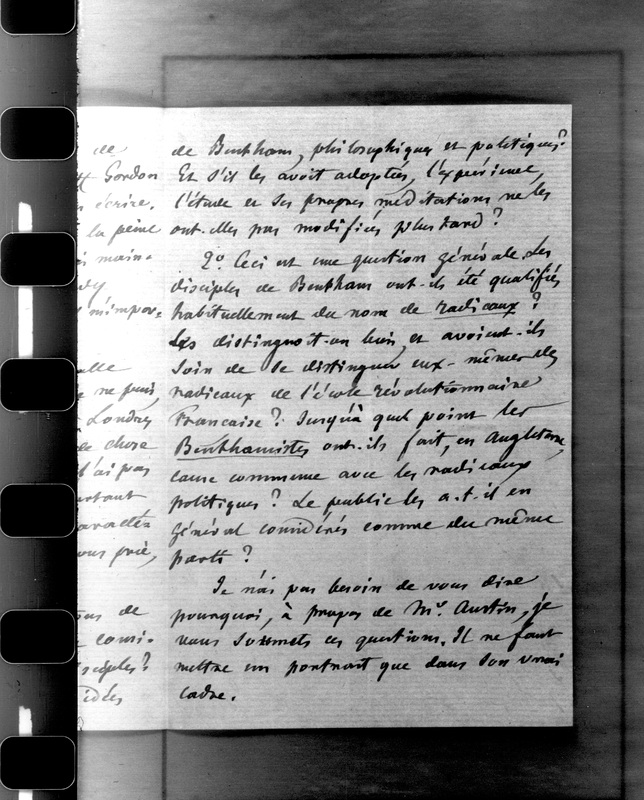 de
Gordon
écrire.
la peine
main-
m'impor-
ne puis
Londres
chose
l'ai pas
ous prie,
de
consi-
sciples?
idées
de Bentham, philosophiques et politiques?
Et s'il les avoit adoptés, l'expérience,
l'étude et ses propres méditations ne les
ont-elles pas modifiés plus tard ?
2o. Ceci est une question générale. Les
disciples de Bentham ont-ils été qualifiés
habituellement du nom de radicaux ?
Les distinguoit-on bien, et avoient-ils
soin de se distinguer eux-mêmes des
radicaux de l'école révolutionnaire
Française ? Jusqu'à quel point les
Benthamistes ont-ils fait, en Angleterre,
cause commune avec les radicaux
politiques ? Le public les a-t-il en
général considérés comme du même
parti ?
Je n'ai pas besoin de vous dire
pourquoi, à propos de Mr. Austin, je
vous soumets ces questions. Il ne faut
mettre un portrait que dans son vrai
cadre.